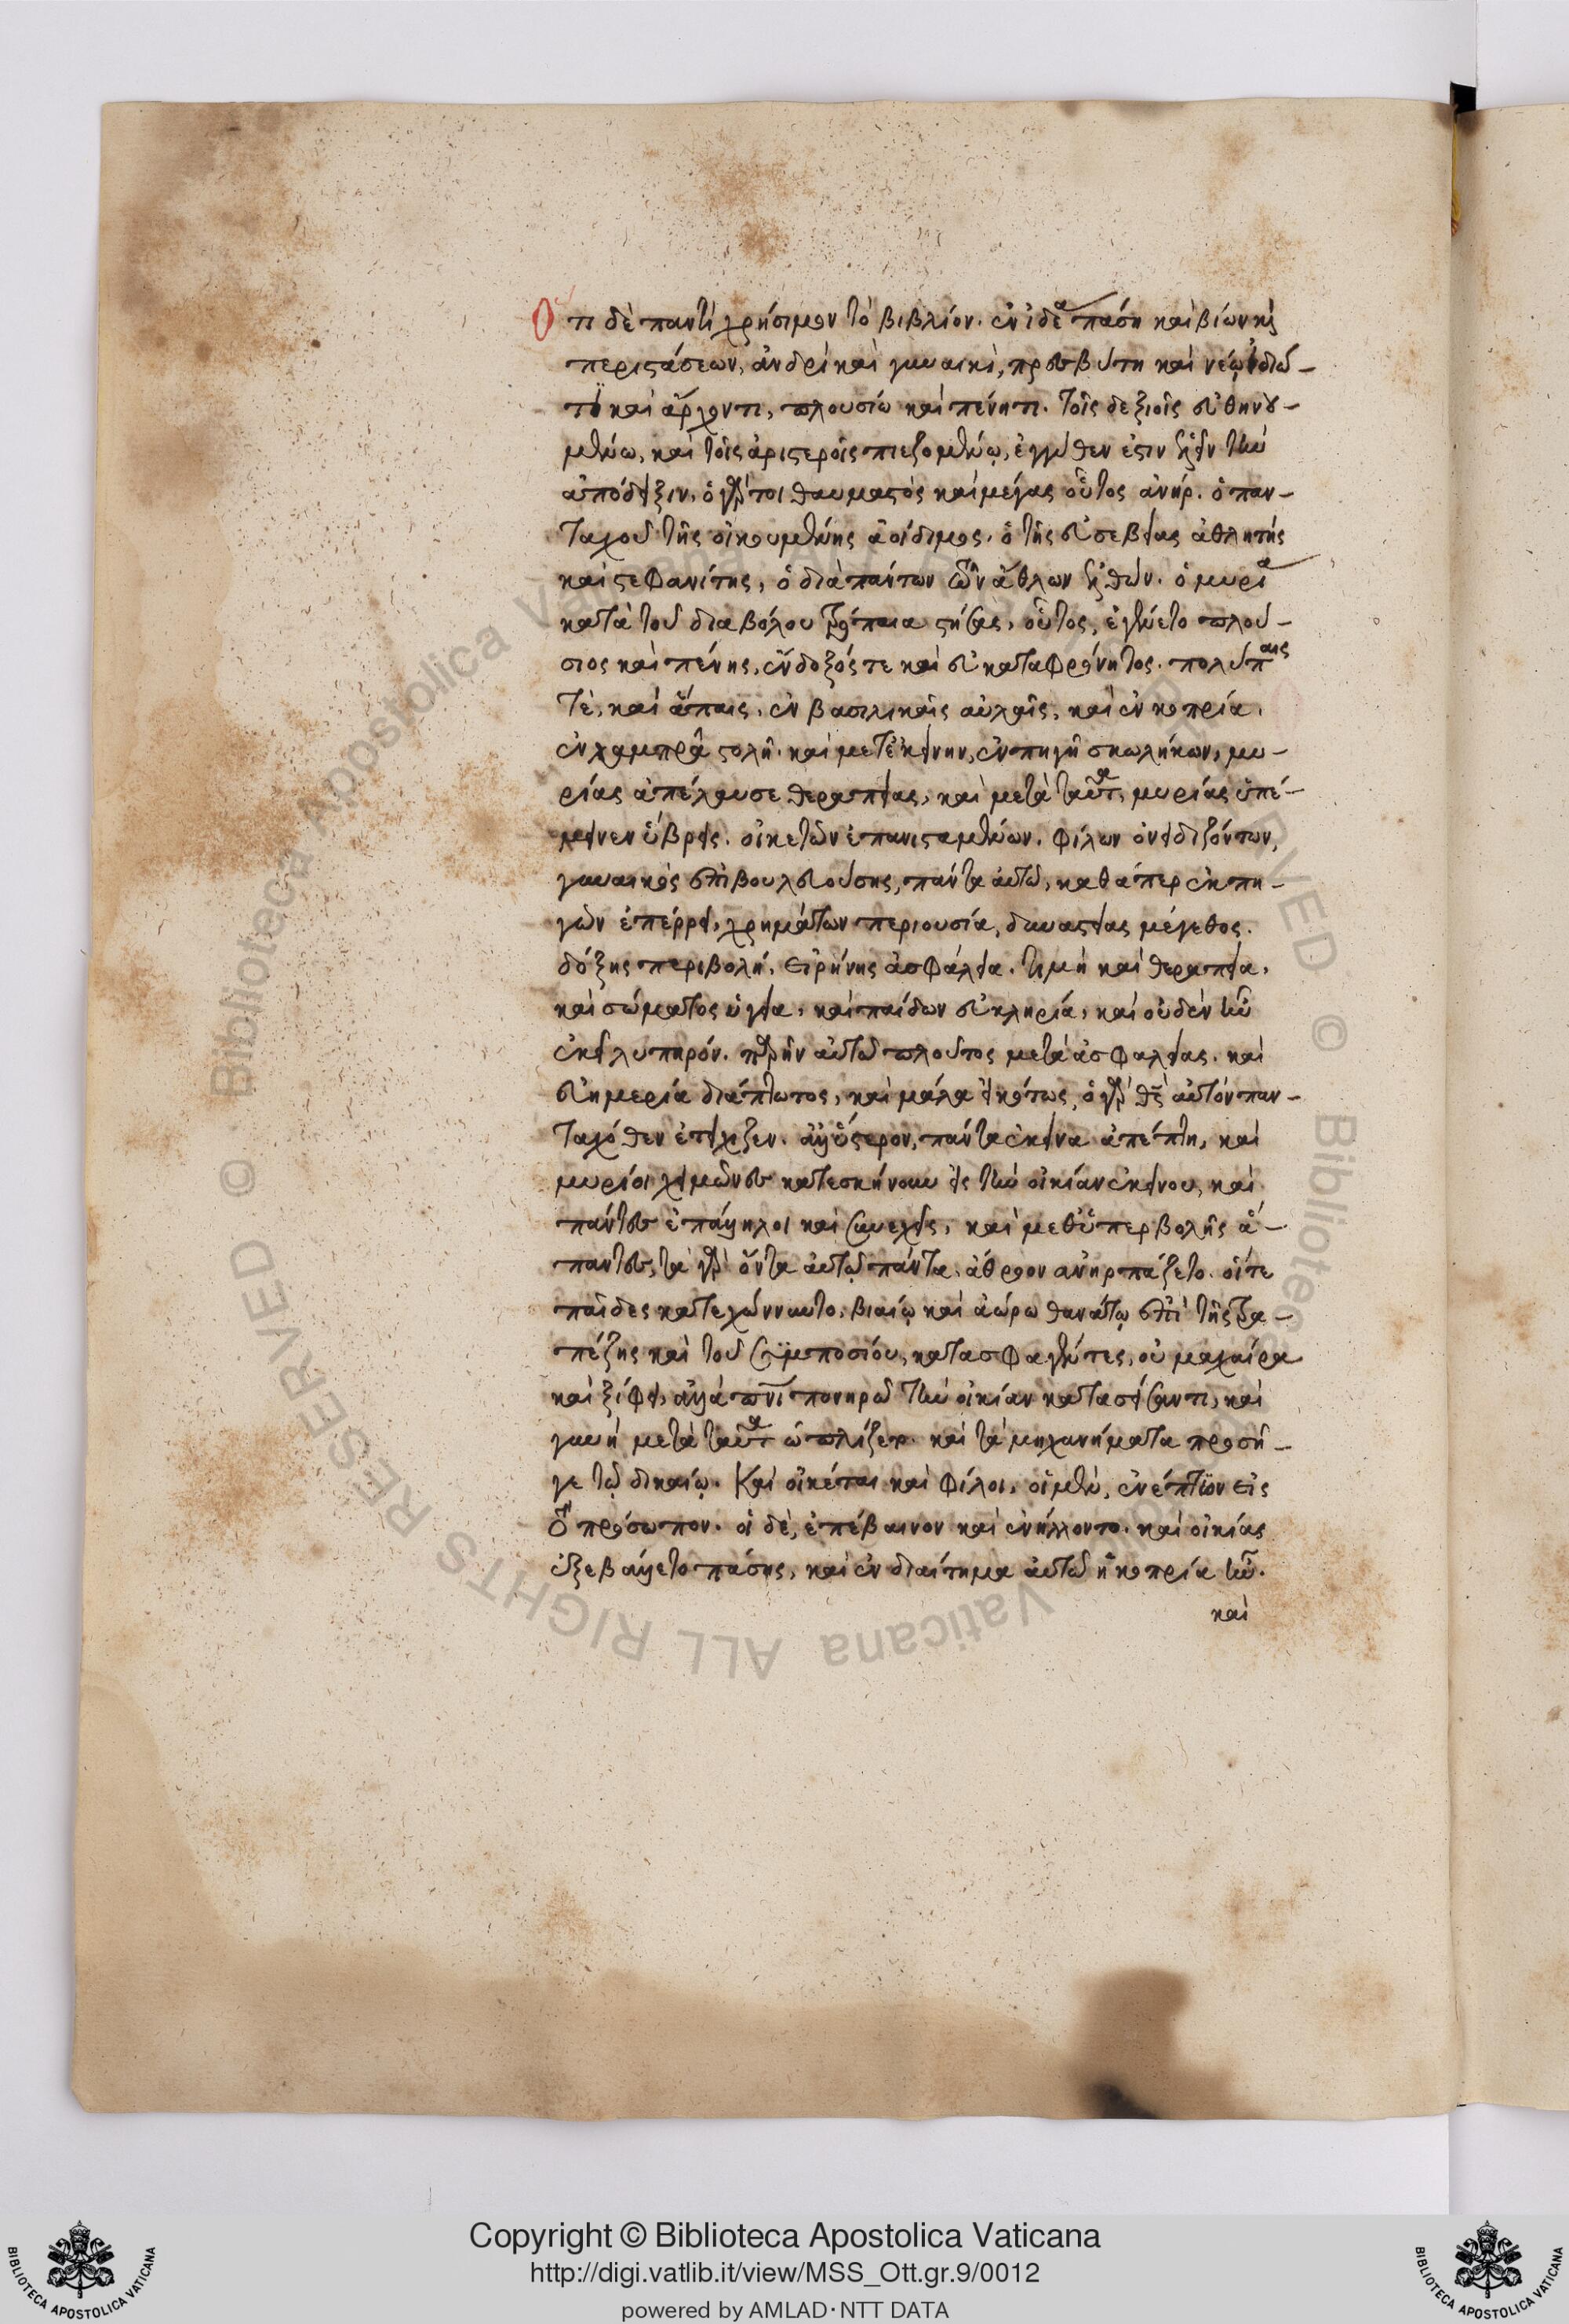 Ὅτι δὲ παντὶ χρήσιμον τὸ βιβλίον. ἐν ἰδέα πάση καὶ βίων καὶ
περιστάσεων, ἀνδρὶ καὶ γυναικὶ, πρεσβύτη καὶ νέω, ἰδιώ-
τη καὶ ἄρχοντι, πλουσίω καὶ πένητι. τοῖς δεξιοῖς εὐθηνου-
μένω, καὶ τοῖς ἀριστεροῖς πιεζομένῳ, ἐγγύθεν ἐστιν ἰδεῖν τὴν
ἀπόδειξιν, ὁ γάρ τοι θαυμαστὸς καὶ μέγας οὗτος ἀνήρ. ὁ παν-
ταχοῦ τῆς οἰκουμένης ἀοίδιμος. ὁ τῆς εὐσεβείας ἀθλητής
καὶ στεφανίτης, ὁ διὰ πάντων τῶν ἄθλων ἐλθών. ὁ μυρία
κατὰ τοῦ διαβόλου τρόπαια στήσας, οὗτος, ἐγένετο πλού-
σιος καὶ πένης, ἔνδοξός τε καὶ εὐκαταφρόνητος. πολύπαις
τὲ, καὶ ἄπαις. ἐν βασιλικαῖς αὐλαῖς, καὶ ἐν κοπρία.
ἐν λαμπρᾶ στολῆ. καὶ μετ' ἐκείνην, ἐν πηγῆ σκωλήκων, μυ-
ρίας ἀπέλαυσε θεραπείας, καὶ μετὰ ταῦτα, μυρίας ὑπέ-
μεινεν ὕβρεις. οἰκετῶν ἐπανισταμένων. φίλων ὀνειδιζόντων,
γυναικὸς ἐπιβουλευούσης, πάντα αὐτῶ, καθάπερ ἐκ πη-
γῶν ἐπέρρει, χρημάτων περιουσία, δυναστείας μέγεθος.
δόξης περιβολή. εἰρήνης ἀσφάλεια. τιμὴ καὶ θεραπεία.
καὶ σώματος ὑγεία, καὶ παίδων εὐκληρία, καὶ οὐδὲν ἦν
ἐκεῖ λυπηρόν. παρῆν αὐτῶ πλοῦτος μετὰ ἀσφαλείας. καὶ
εὐημερία διάπτωτος, καὶ μάλα εἰκότως, ὁ γὰρ θς αὐτὸν παν-
ταχόθεν ἐτείχιζεν. ἀλλ' ὕστερον, πάντα ἐκεῖνα ἀπέπτη, καὶ
μυρίοι χειμῶνες κατεσκήνουν εἰς τὴν οἰκίαν ἐκείνου, καὶ
πάντες ἐπάλληλοι καὶ συνεχεῖς, καὶ μεθ' ὑπερβολῆς ἅ-
παντες, τὰ γὰρ ὄντα αὐτῷ πάντα, ἀθρόον ἀνηρπάζετο. οἵτε
παῖδες κατεχώννυντο, βιαίῳ καὶ ἀώρω θανάτῳ ἐπὶ τῆς τρα-
πέζης καὶ τοῦ συμποσίου, κατασφαγέντες, οὐ μαχαίρα
καὶ ξίφει, ἀλλὰ πνι πονηρῶ τὴν οἰκίαν κατασείσαντι, καὶ
γυνὴ μετὰ ταῦτα ὡπλίζετο. καὶ τὰ μηχανήματα προσῆ-
γε τῷ δικαίῳ. Καὶ οἰκέται καὶ φίλοι, οἱ μὲν, ἐνέπτυον εἰς
τὸ πρόσωπον. οἱ δὲ, ἐπέβαινον καὶ ἐνήλλοντο. καὶ οἰκίας
ἐξεβάλλετο πάσης, καὶ ἐν διαίτημα αὐτῶ ἡ κοπρία ἦν.
καὶ
Copyright © Biblioteca Apostolica Vaticana
http://digi.vatlib.it/view/MSS_Ott.gr.9/0012
powered by AMLAD·NTT DATA